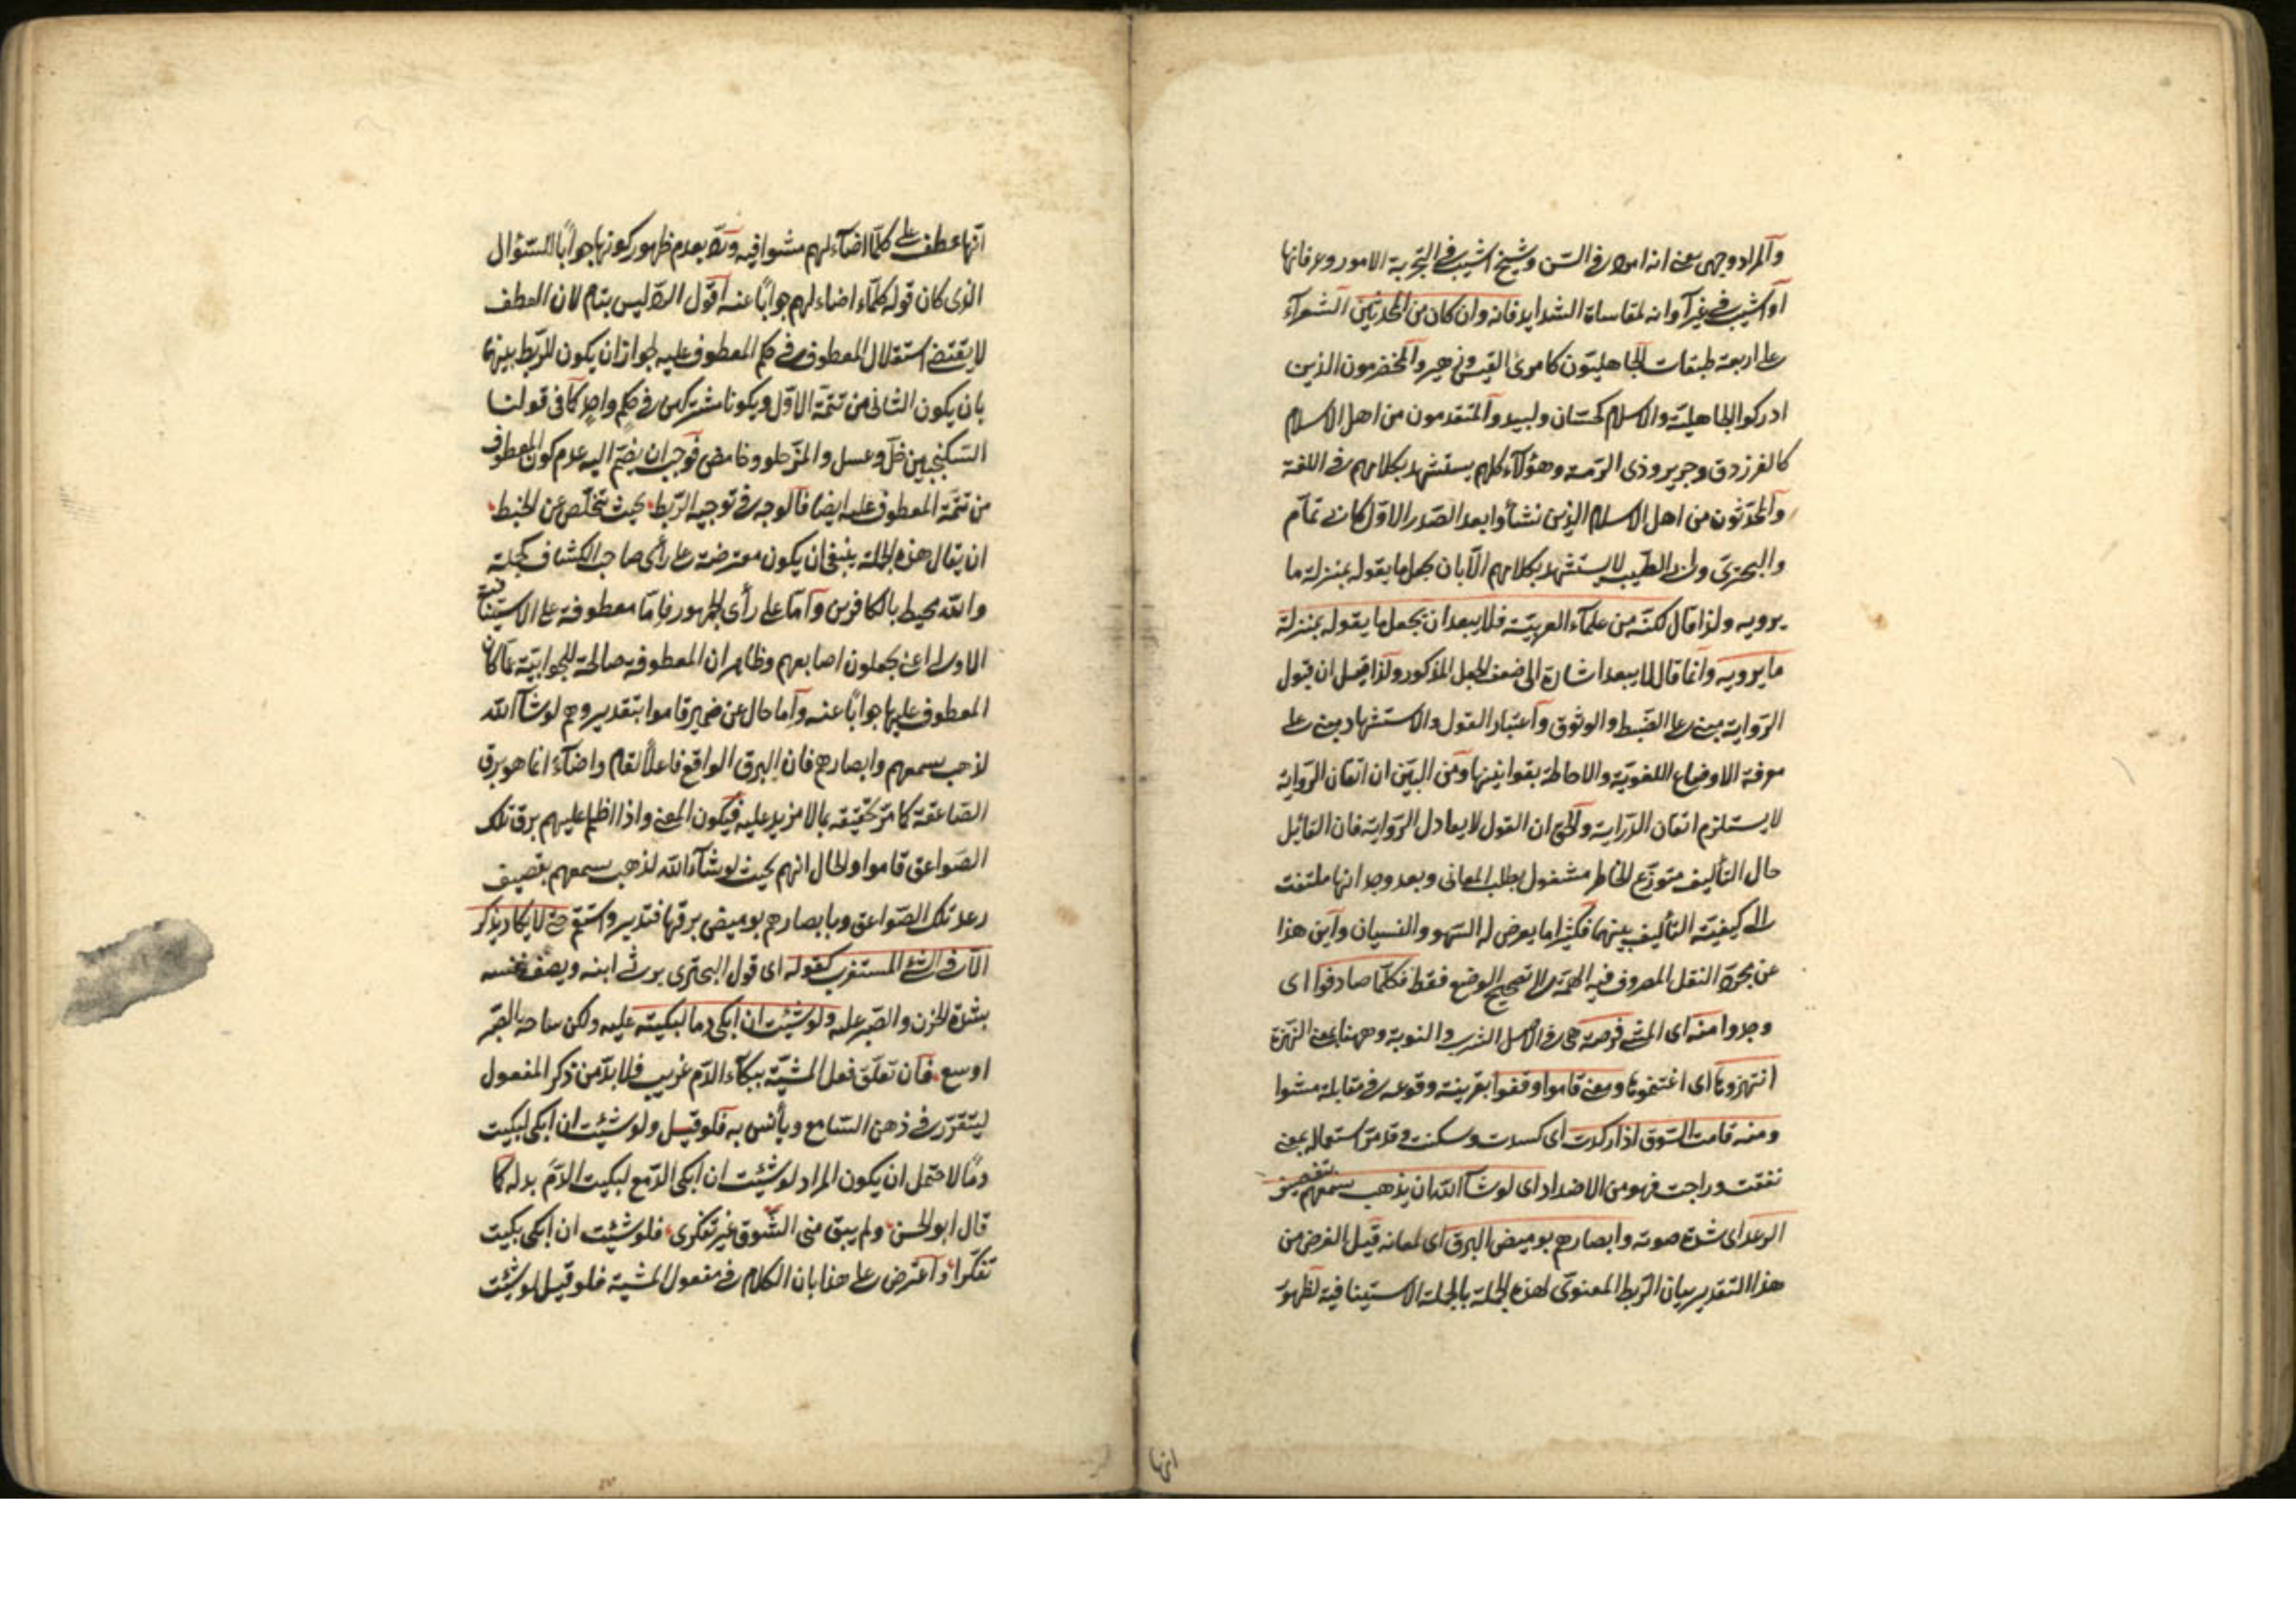 والمراد وجهى يعنى انه امرد فى السن وشيخ اشيب فى التجربة الامور وعرفانها
او اشيب فى غير آوانه لمقاساة الشدايد فانه وان كان من المحدثين الشعرآء
على اربعة طبقات الجاهليّون كامرئ القيس وزهير والمخضرمون الذين
ادركوا الجاهليّة والاسلام كحسّان ولبيد والمتقدمون من اهل الاسلام
كالفرزدق وجرير وذى الرّمة وهؤلآء كلهم يستشهد بكلامهم فى اللغة
والمحدّثون من اهل الاسلام الذين نشأوا بعد الصّدر الاوّل كابى تمّام
والبحترى وابى الطّيب لا يستشهد بكلامهم الّا بان يجعل ما يقوله بمنزلة ما
يرويه ولذا قال لكنّه من علمآء العربيّة فلا يبعد ان يجعل ما يقوله بمنزلة
ما يرويه وانّما قال لا يبعد اشارة الى ضعف الجعل المذكور ولذا قيل ان قبول
الرّواية مبنى على الضّبط والوثوق واعتبار القول والاستشهاد مبنى على
معرفة الاوضاع اللغويّة والاحاطة بقوانينها ومن البيّن ان اتقان الرّواية
لا يستلزم اتقان الدّراية والحق ان القول لا يعادل الرّواية فان القائل
حال التأليف متوزّع الخاطر مشغول بطلب المعانى وبعد وجدانها ملتفت
الى كيفيّة التأليف بينهما فكثيرا ما يعرض له السّهو والنسيان واين هذا
عن مجرّد النقل المصروف فيه الهمّة الى تصحيح الوضع فقط فكلّما صادفوا اى
وجدوا منه اى المشى فرصة هى فى الاصل الشرب والنوبة وههنا بمعنى النهزة
انتهزوها اى اغتنموها ومعنى قاموا وقفوا بقرينة وقوعه فى مقابلة مشوا
ومنه قامت السّوق اذا ركدت اى كسدت وسكنت وقد مرّ استعماله بمعنى
نفقت وراجت فهو من الاضداد اى لو شآء الله ان يذهب سمعهم بقصيف
الرعد اى شدة صوته وابصارهم بوميض البرق اى لمعانه قيل الغرض من
هذا التقدير بيان الرّبط المعنوى لهذه الجملة بالجملة الاستينافية لظهور
انها
انّها عطف على كلّما اضآء لهم مشوا فيه وردّ بعدم ظهور كونها جوابًا للسّؤال
الذى كان قوله كلّمآء اضاء لهم جوابًا عنه اقول الردّ ليس بتام لان العطف
لا يقتضى استقلال المعطوف فى حكم المعطوف عليه لجواز ان يكون للرّبط بينهما
بان يكون الثانى من تتمّة الاوّل ويكونا مشتركين فى حكم واحد كما فى قولنا
السكنجبين خلّ وعسل والمزّ حلو وحامض فوجب ان يضمّ اليه عدم كون المعطوف
من تتمّة المعطوف عليه ايضا فالوجه فى توجيه الرّبط بحيث يتخلّص عن الخبط
ان يقال هذه الجملة ينبغى ان يكون معترضة على رأى صاحب الكشاف كجملة
والله محيط بالكافرين وامّا على رأى الجمهور فامّا معطوفة على الاستينافية
الاولى اعنى يجعلون اصابعهم وظاهر ان المعطوفة صالحة للجوابيّة عمّا كان
المعطوف عليها جوابًا عنه وامّا حال عن ضمير قاموا بتقدير وهم لو شآء الله
لذهب بسمعهم وابصارهم فان البرق الواقع فاعلاً لقام واضآء انما هو برق
الصّاعقة كما مرّ تحقيقه بما لا مزيد عليه فيكون المعنى واذا اظلم عليهم برق تلك
الصّواعق قاموا والحال انهم بحيث لو شآء الله لذهب بسمعهم بقصيف
رعد تلك الصّواعق وبابصارهم بوميض برقها فتدبر واستقم حتى لا يكاد يذكر
الّا فى الشئ المستغرب كقوله اى قول البحترى يرثى ابنه ويصف نفسه
بشدة الحزن والصّبر عليه ولو شئت ان ابكى دما لبكيته عليه ولكن ساحة الصّبر
اوسع فان تعلّق فعل المشيّة ببكآء الدّم غريب فلا بدّ من ذكر المفعول
ليتقرّر فى ذهن السّامع ويأنس به فلو قيل ولو شئت ان ابكى لبكيت
دمًا لاحتمل ان يكون المراد لو شئت ان ابكى الدّمع لبكيت الدّم بدله كما
قال ابو الحسن ولم يبق منى الشّوق غير تفكرى فلو شئت ان ابكى بكيت
تفكّرا واعترض على هذا بان الكلام فى مفعول المشية فلو قيل لو شئت